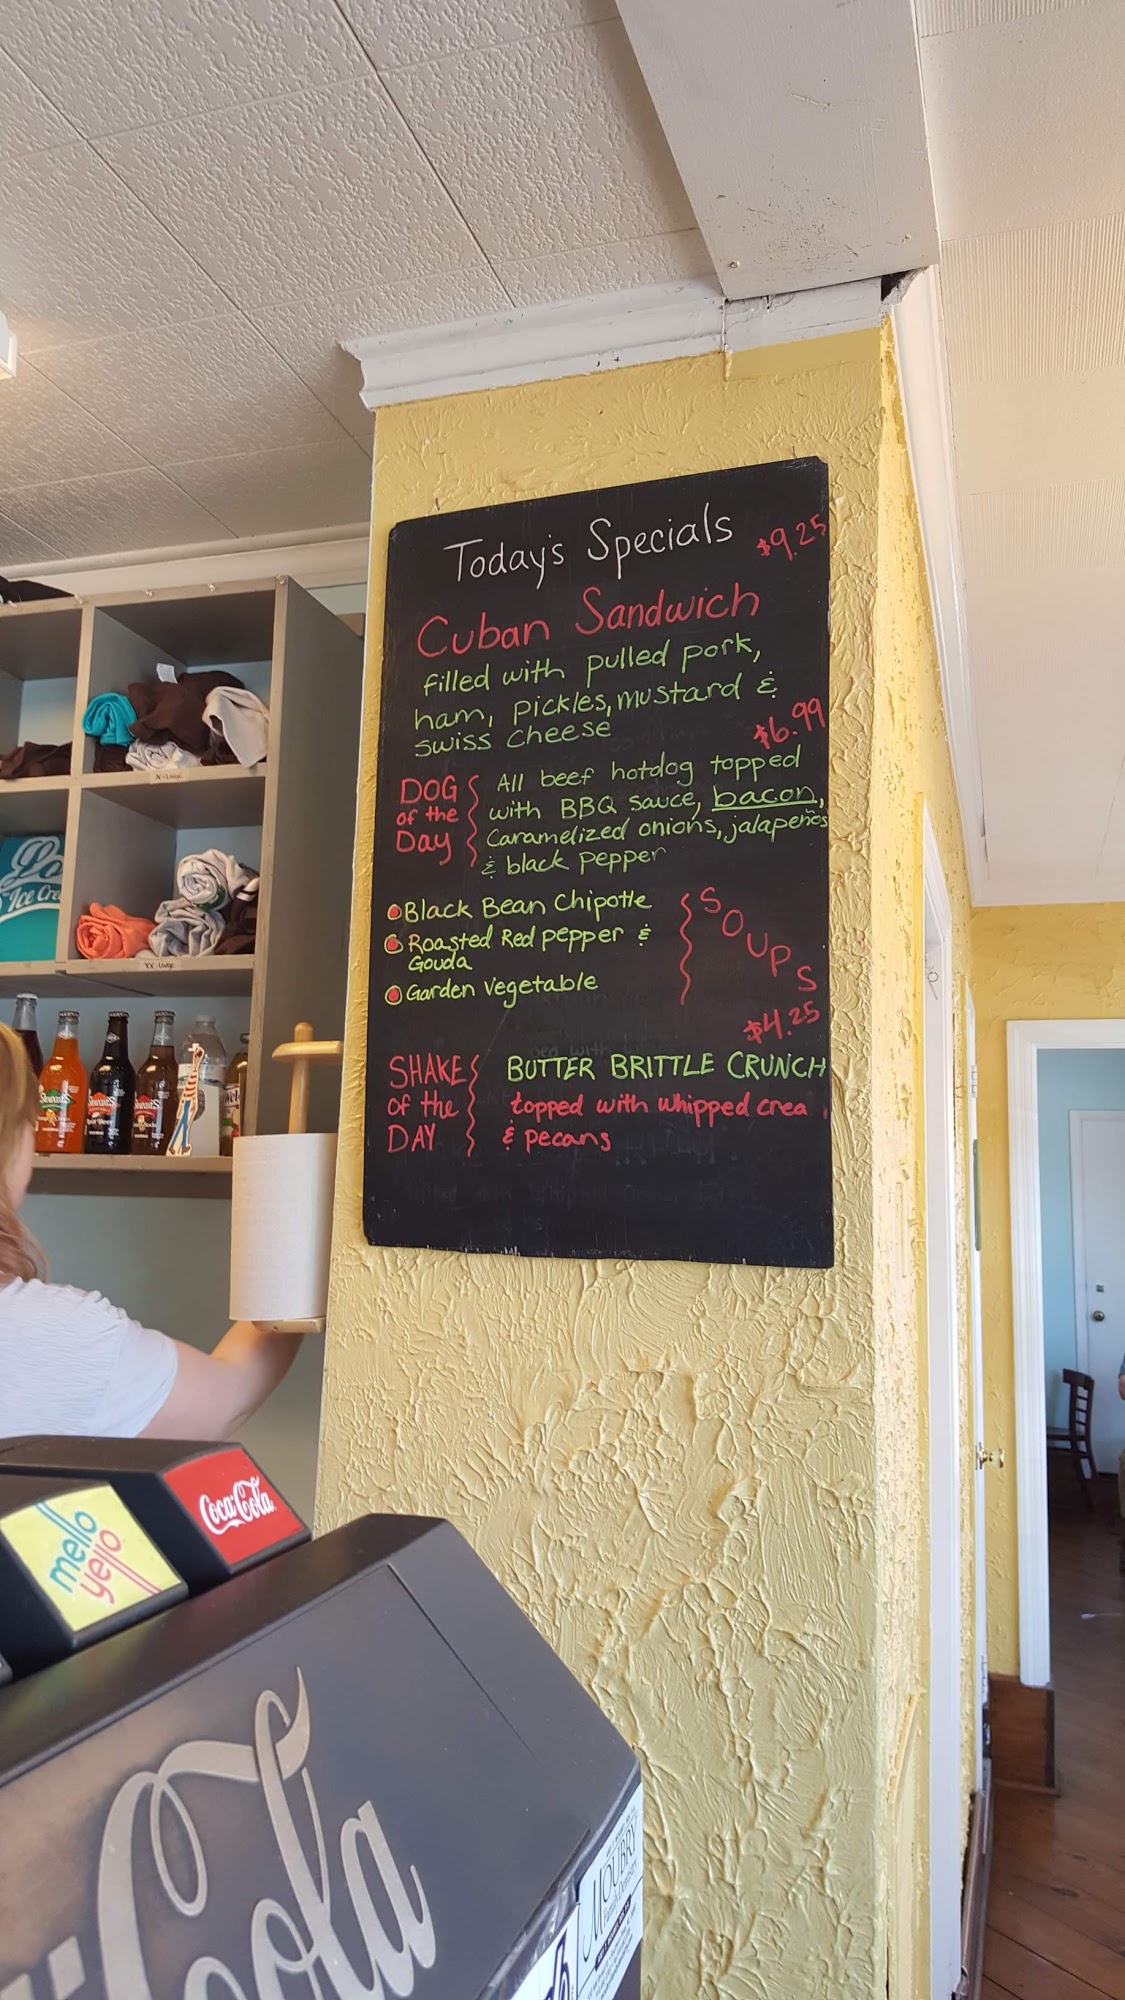 Today's Specials
$9.25
Cuban Sandwich
filled with pulled pork,
ham, pickles, mustard &
swiss cheese
$6.99
DOG
of the
Day
All beef hotdog topped
with BBQ sauce, bacon,
Caramelized onions, jalapeños
& black pepper
Black Bean Chipotle
Roasted Red pepper &
Gouda
Garden Vegetable
SOUPS
$4.25
SHAKE
of the
DAY
BUTTER BRITTLE CRUNCH
topped with whipped crea
& pecans
X-Large
XX-Large
Ice Cre
Stewart's
Stewart's
Root Beer
Stewart's
Coca-Cola
mello
yello
Cola
MOUBRY